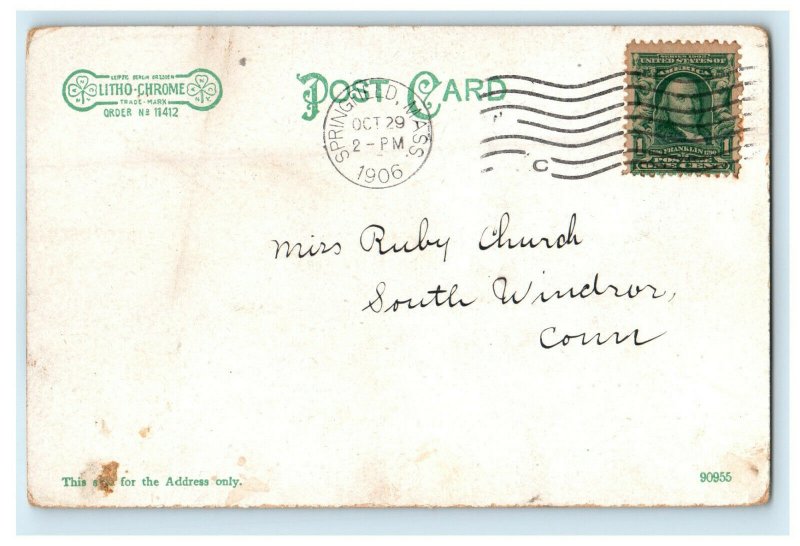 LEIPZIG BERLIN DRESDEN
LITHO-CHROME
TRADE-MARK
ORDER No 11412
POST CARD
SPRINGFIELD, MASS.
OCT 29
2-PM
1906
C
SERIES 1902
UNITED STATES OF
AMERICA
1 FRANKLIN 1790 1
POSTAGE
ONE CENT
Miss Ruby Church
South Windsor,
Conn
This side for the Address only.
90955